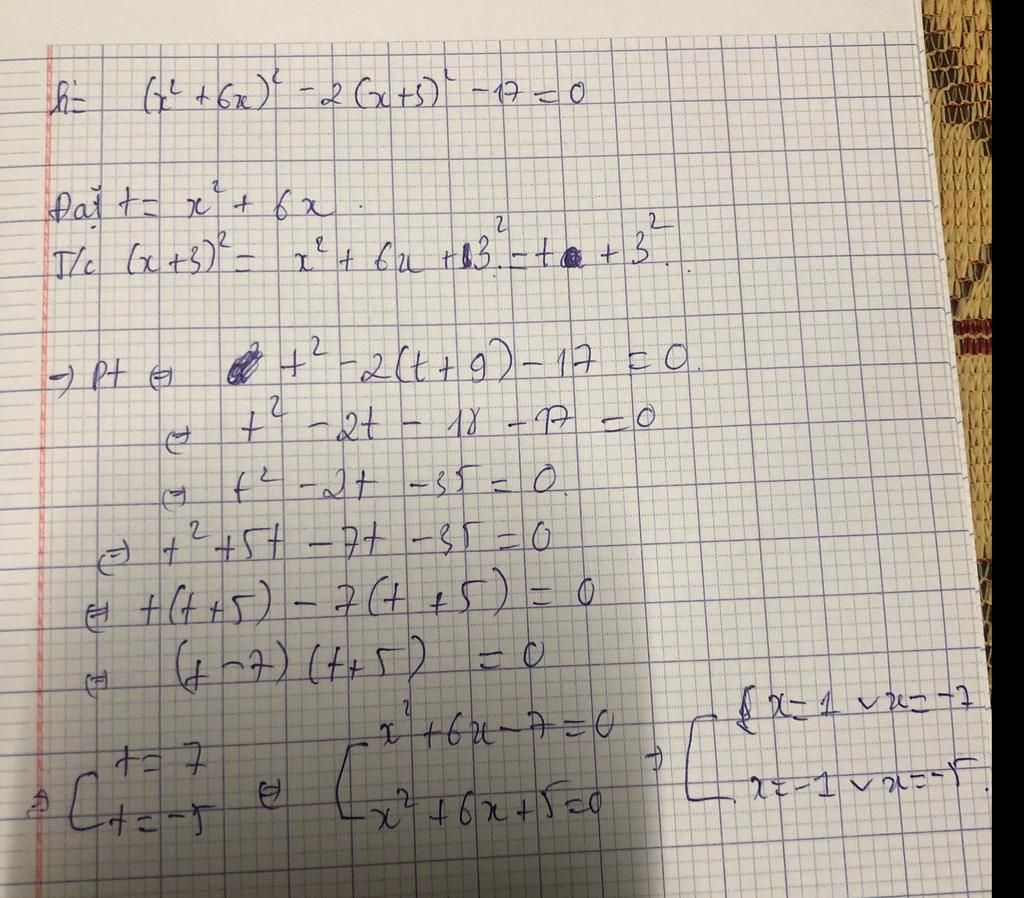 h= (x² + 6x)² - 2(x+3)² - 17 = 0
Đặt t = x² + 6x.
T/c (x+3)² = x² + 6x + 3² = t + 3².
→ Pt ⇔ t² - 2(t+9) - 17 = 0.
⇔ t² - 2t - 18 - 17 = 0
⇔ t² - 2t - 35 = 0.
⇔ t² + 5t - 7t - 35 = 0
⇔ t(t+5) - 7(t+5) = 0
⇔ (t-7)(t+5) = 0
⇔ [ t = 7 ⇔ [ x² + 6x - 7 = 0 → [ x = 1 ∨ x = -7
t = -5 x² + 6x + 5 = 0 x = -1 ∨ x = -5.